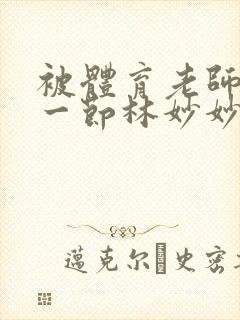 被體育老師
一節林妙妙
邁克尔 史密